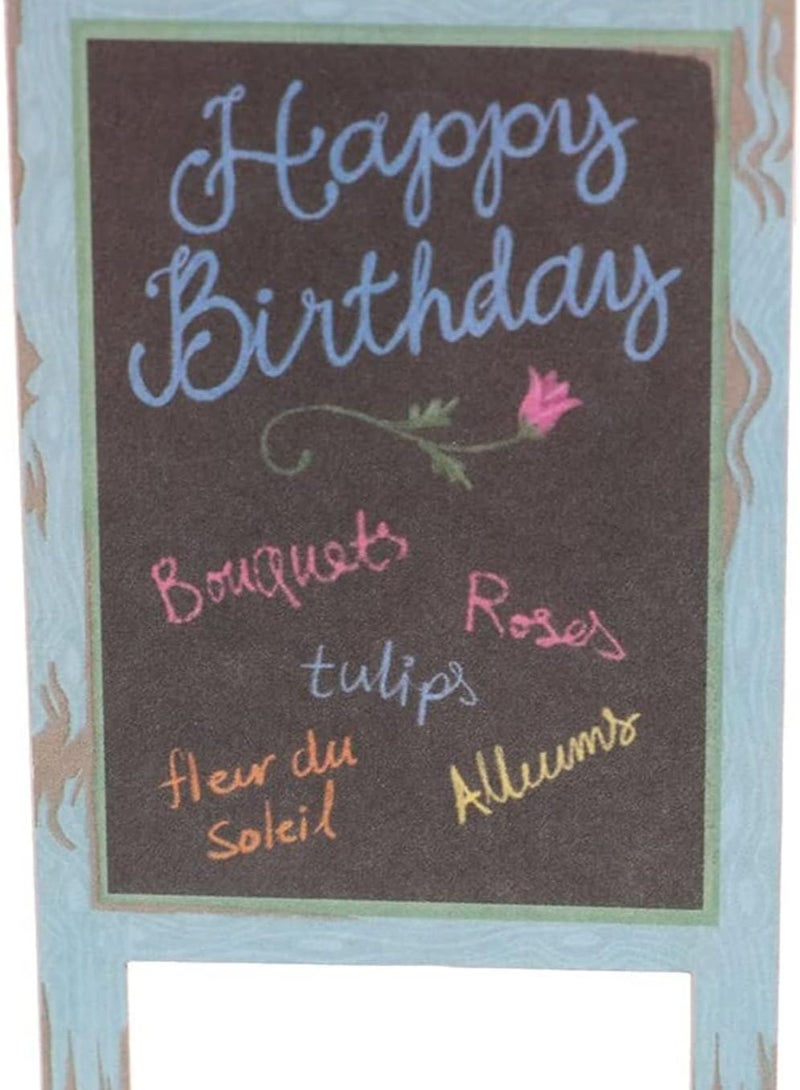 Happy
Birthday
Bouquets
Roses
tulips
fleur du
soleil
Alliums